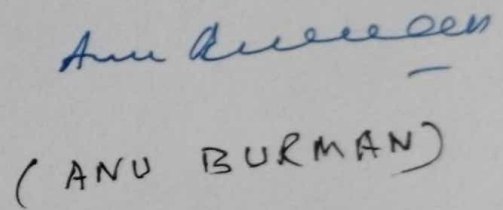 Anu Burman
(ANU BURMAN)